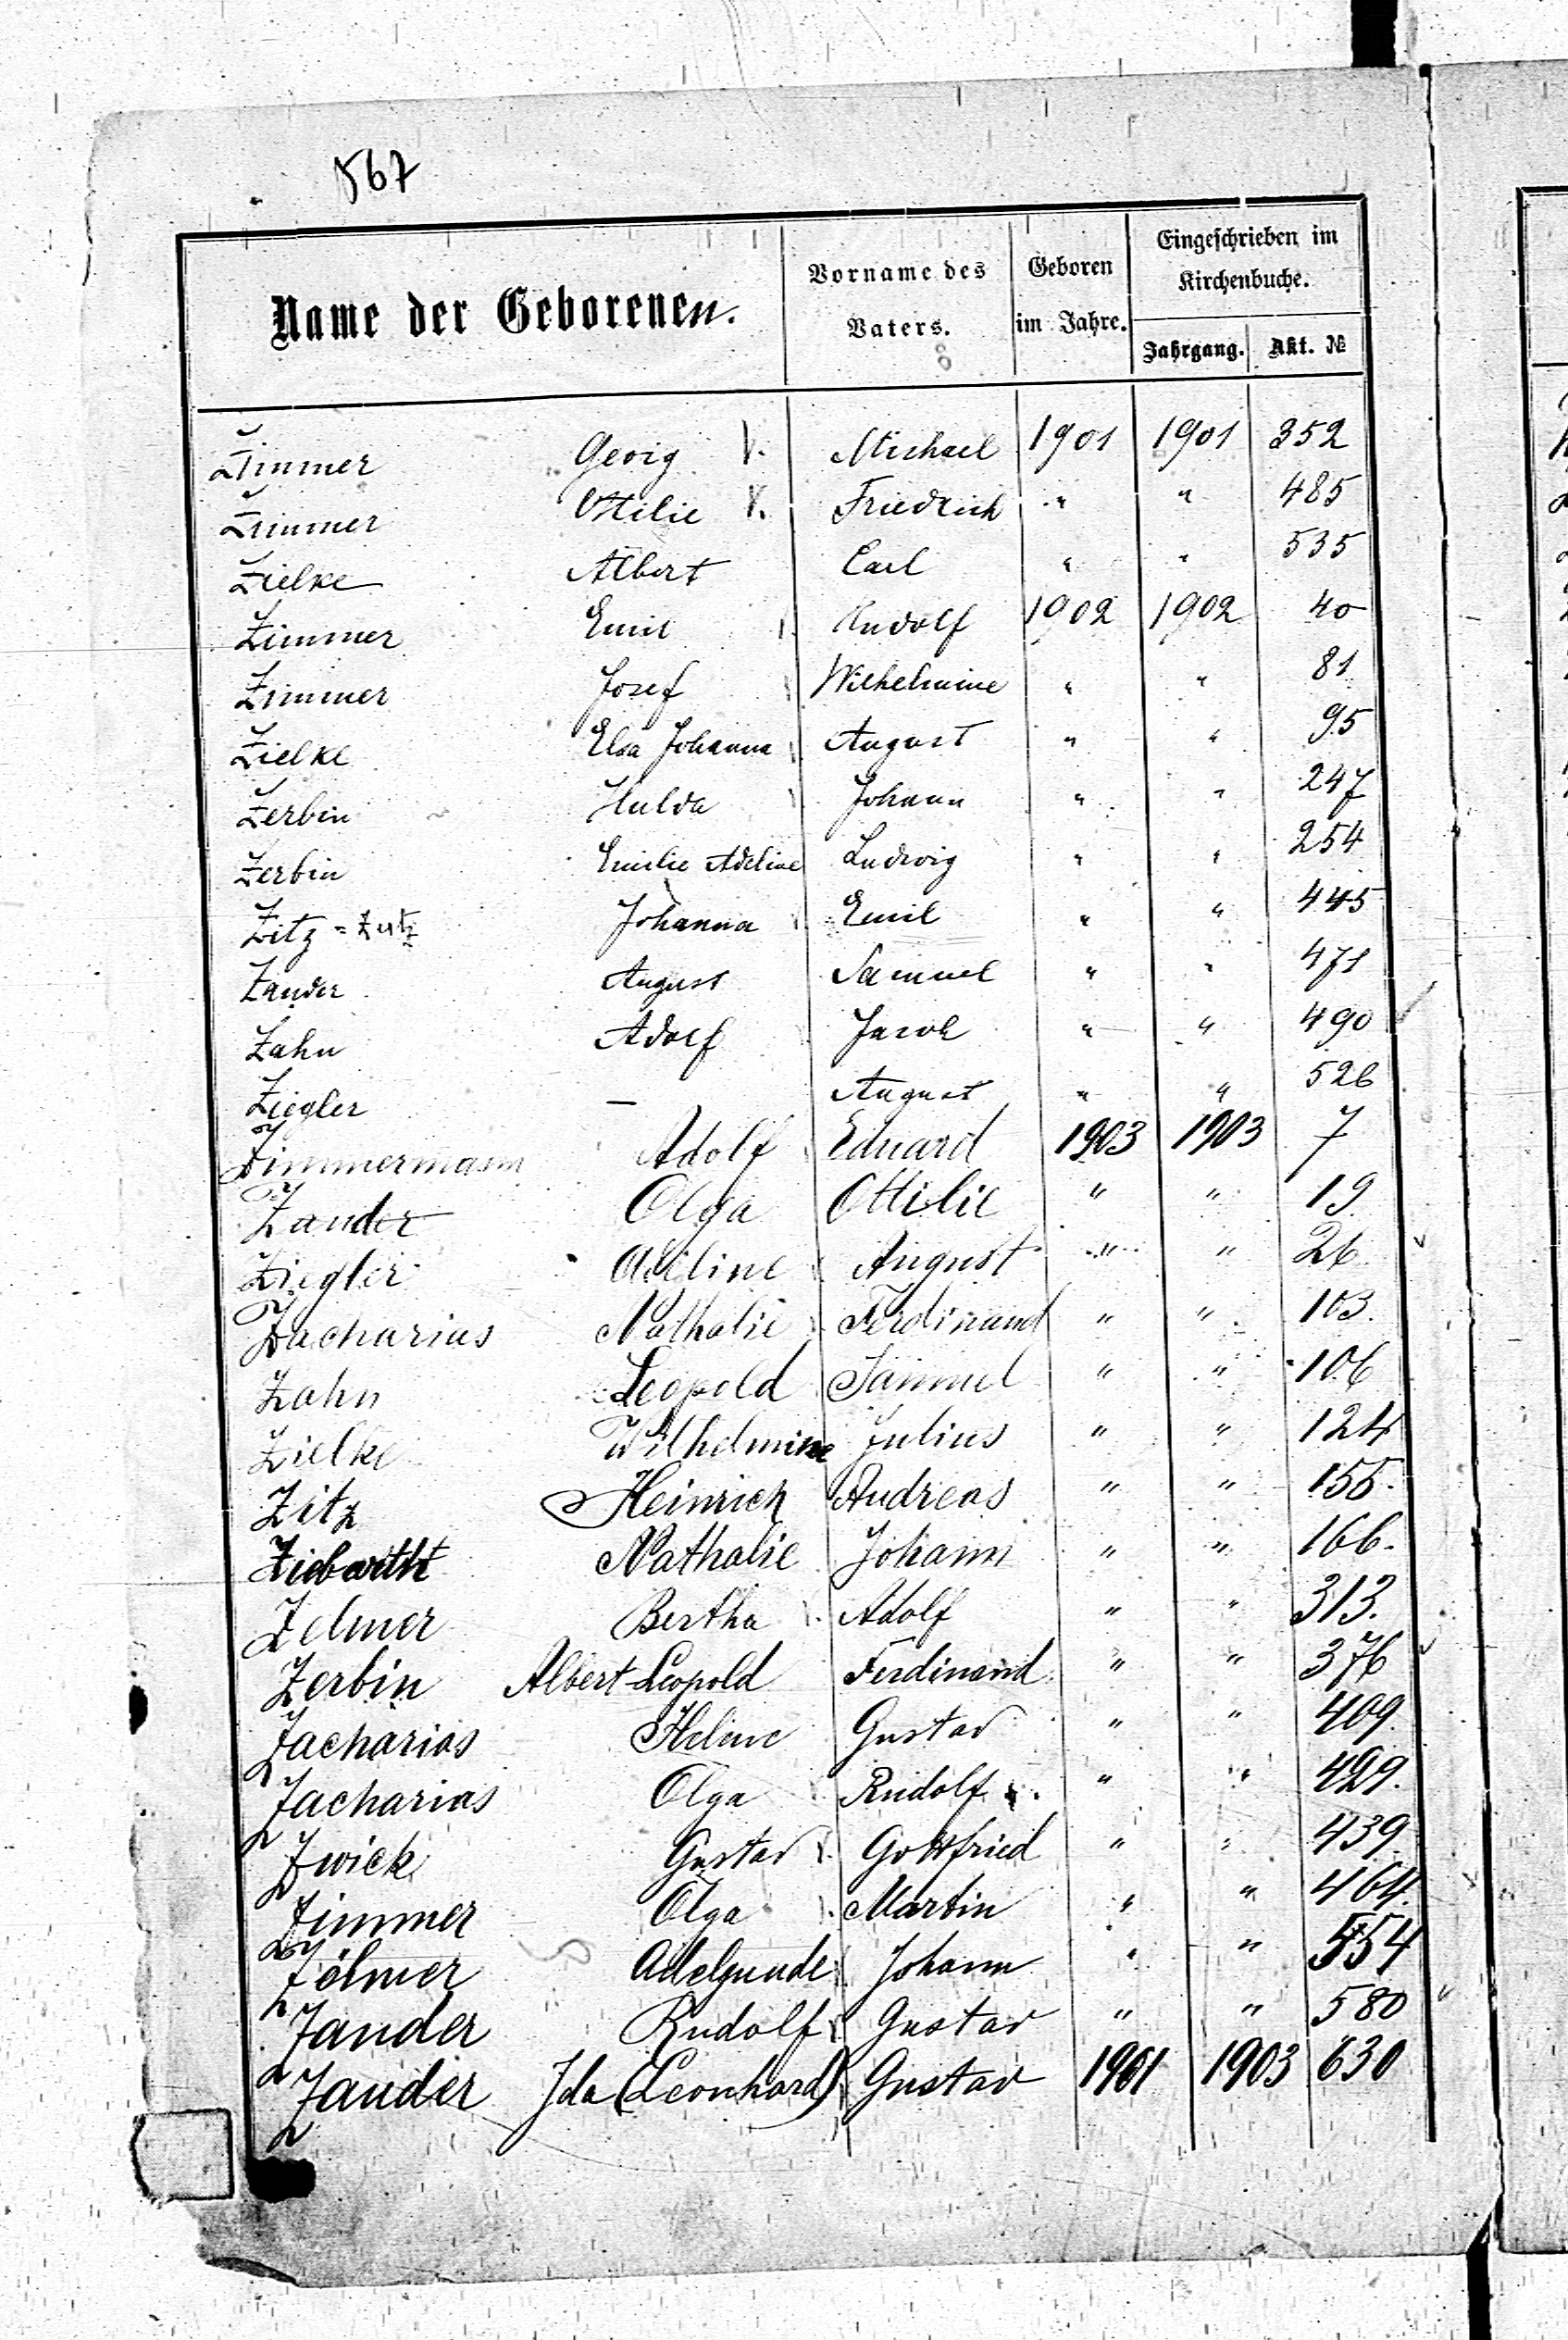 567
Name der Geborenen. Vorname des Vaters. Geboren im Jahre. Eingeschrieben im Kirchenbuche.
Jahrgang. Akt. №
Zimmer Georg Michael 1901 1901 352
Zimmer Ottilie Friedrich " " 485
Zielke Albert Carl " " 535
Zimmer Emil Rudolf 1902 1902 40
Zimmer Josef Wilhelmine " " 81
Zielke Elsa Johanna August " " 95
Zerbin Hulda Johann " " 247
Zerbin Emilie Adeline Ludwig " " 254
Zitz = Johanna Emil " " 445
Zander August Samuel " " 471
Zahn Adolf Jacob " " 490
Ziegler — August " " 526
Zimmermann Adolf Eduard 1903 1903 7
Zander Olga Ottilie " " 19
Ziegler Adeline August " " 26
Zacharias Nathalie Ferdinand " " 103.
Zahn Leopold Samuel " " 106
Zielke Wilhelmine Julius " " 124
Zitz Heinrich Andreas " " 155.
Ziebarth Nathalie Johann " " 166.
Zelmer Bertha Adolf " " 313.
Zerbin Albert-Leopold Ferdinand " " 376
Zacharias Helene Gustav " " 409.
Zacharias Olga Rudolf " " 429.
Zwick Gustav Gottfried " " 439.
Zimmer Olga Martin " " 464.
Zölmer Adelgunde Johann " " 554
Zander Rudolf Gustav " " 580
Zander Ida (Leonhard) Gustav 1901 1903 630